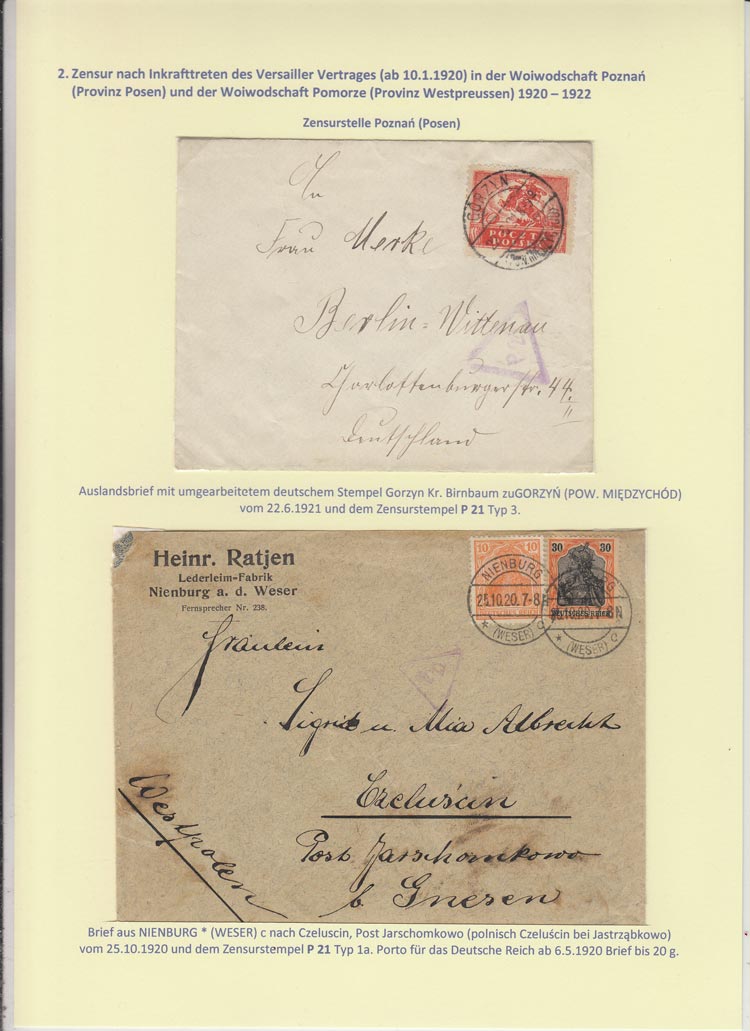 2. Zensur nach Inkrafttreten des Versailler Vertrages (ab 10.1.1920) in der Woiwodschaft Poznań
(Provinz Posen) und der Woiwodschaft Pomorze (Provinz Westpreussen) 1920 – 1922
Zensurstelle Poznań (Posen)
GORZYN
POCZTA
POLSKA
An
Frau Merke
Berlin=Wittenau
P 21
Charlottenburgerstr. 44.
II
Deutschland
Auslandsbrief mit umgearbeitetem deutschem Stempel Gorzyn Kr. Birnbaum zuGORZYŃ (POW. MIĘDZYCHÓD)
vom 22.6.1921 und dem Zensurstempel P 21 Typ 3.
Heinr. Ratjen
Lederleim-Fabrik
Nienburg a. d. Weser
Fernsprecher Nr. 238.
10 10
DEUTSCHES REICH
30 30
DEUTSCHES REICH
NIENBURG
25.10.20.7-8N
* (WESER) c
(WESER) c
Fräulein
Sigrid u. Mia Albrecht
Czeluścin
Westpolen
Post Jarschomkowo
b. Gnesen
Brief aus NIENBURG * (WESER) c nach Czeluscin, Post Jarschomkowo (polnisch Czeluścin bei Jastrząbkowo)
vom 25.10.1920 und dem Zensurstempel P 21 Typ 1a. Porto für das Deutsche Reich ab 6.5.1920 Brief bis 20 g.